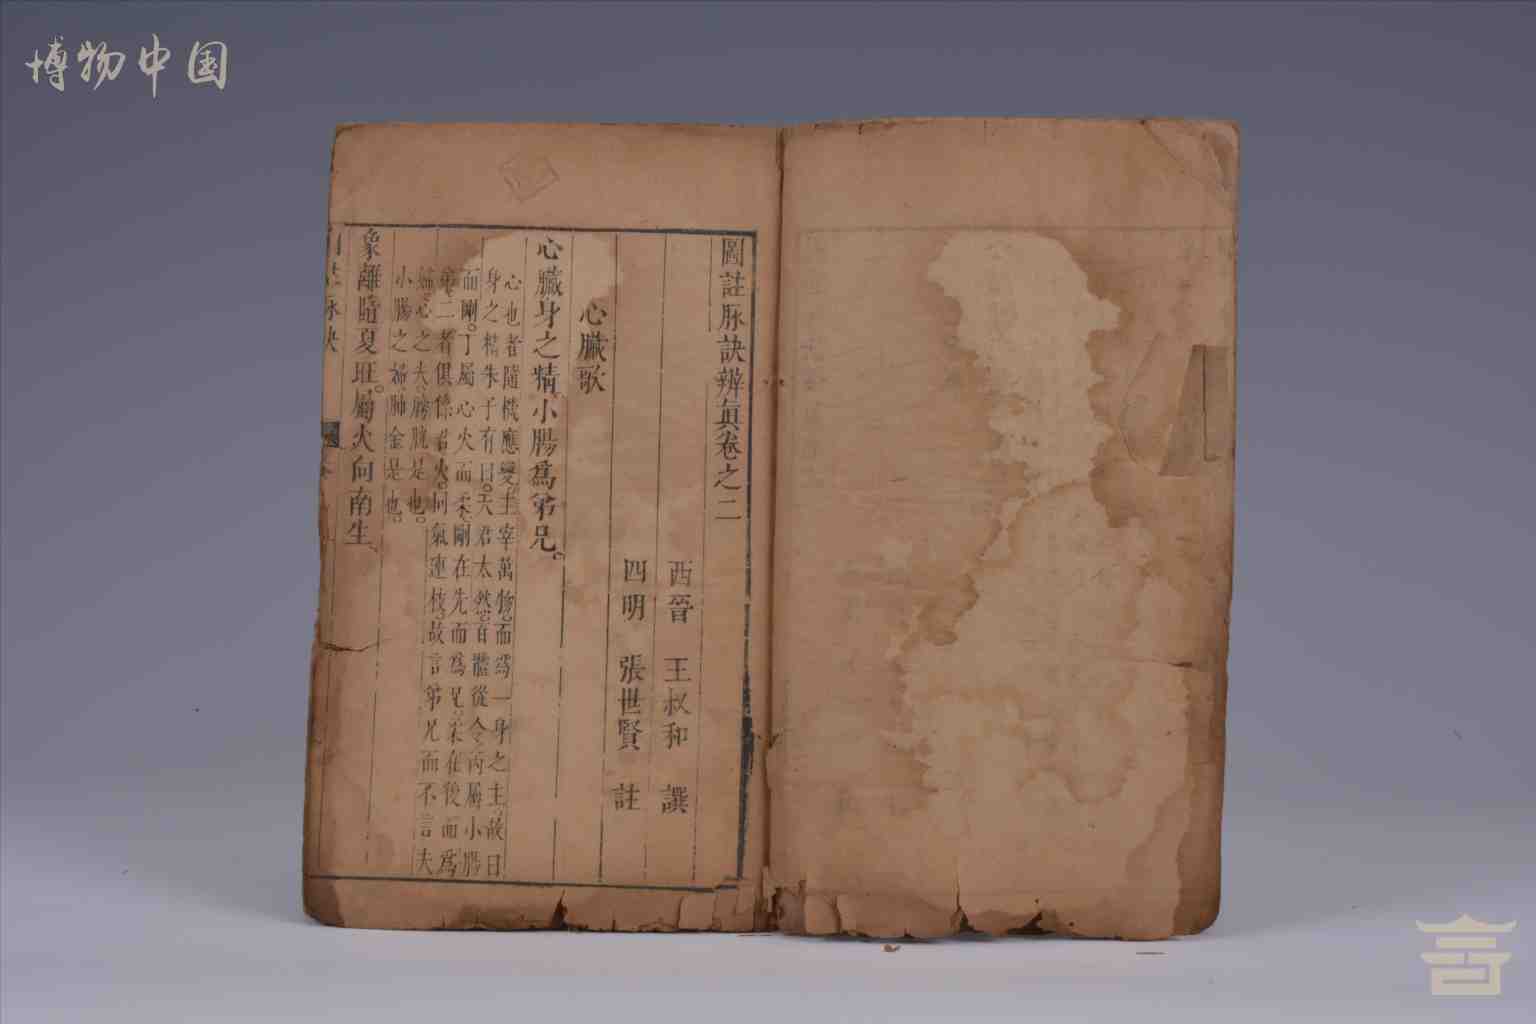 博物中国
圖註脉訣辨真卷之二
西晉 王叔和 譔
四明 張世賢 註
心臟歌
心臟身之精小腸爲弟兄。
心也者隨機應變主宰萬物而爲一身之主故曰
身之精朱子有曰天君太然百體從令丙屬小腸
而剛丁屬心火而柔剛在先而爲兄柔在後而爲
弟二者俱係君火同氣連枝故言弟兄而不言夫
婦心之夫膀胱是也。
小腸之婦肺金是也。
象離隨夏旺。屬火向南生